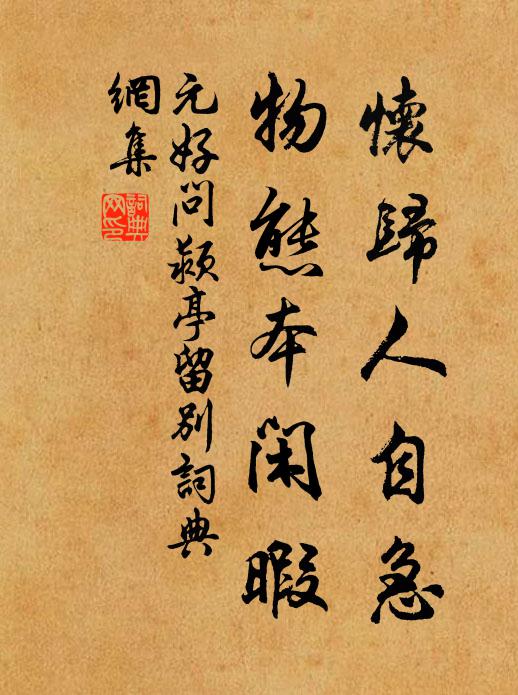 懷歸人自急
物態本閑暇
元好問潁亭留別詞典
網集
詞典
网印